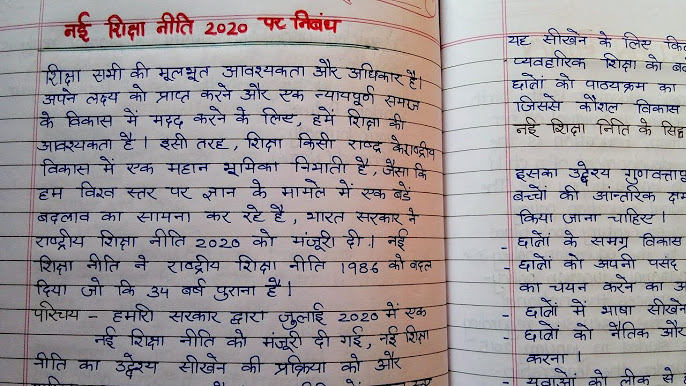 नई शिक्षा नीति 2020 पर निबंध
शिक्षा सभी की मूलभूत आवश्यकता और अधिकार है।
अपने लक्ष्य को प्राप्त करने और एक न्यायपूर्ण समाज
के विकास में मदद करने के लिए, हमें शिक्षा की
आवश्यकता है। इसी तरह, शिक्षा किसी राष्ट्र केराष्ट्रीय
विकास में एक महान भूमिका निभाती है, जैसा कि
हम विश्व स्तर पर ज्ञान के मामले में एक बड़े
बदलाव का सामना कर रहे हैं, भारत सरकार ने
राष्ट्रीय शिक्षा नीति 2020 को मंजूरी दी। नई
शिक्षा नीति ने राष्ट्रीय शिक्षा नीति 1986 को बदल
दिया जो कि 34 बर्ष पुराना है।
परिचय - हमारी सरकार द्वारा जुलाई 2020 में एक
नई शिक्षा नीति को मंजूरी दी गई, नई शिक्षा
नीति का उद्देश्य सीखने की प्रक्रिया को और
यह सीखने के लिए
व्यवहारिक शिक्षा को
छात्रों को पाठ्यक्रम का
जिससे कौशल विकास
नई शिक्षा निति के
इसका उद्देश्य
बच्चों की आंतरिक
किया जाना चाहिए।
- छात्रों के समग्र विकास
- छात्रों को अपनी पसंद
का चयन करने का
- छात्रों में भाषा सीखने
- छात्रों को नैतिक और
करना।
- युवाओं को लीक से